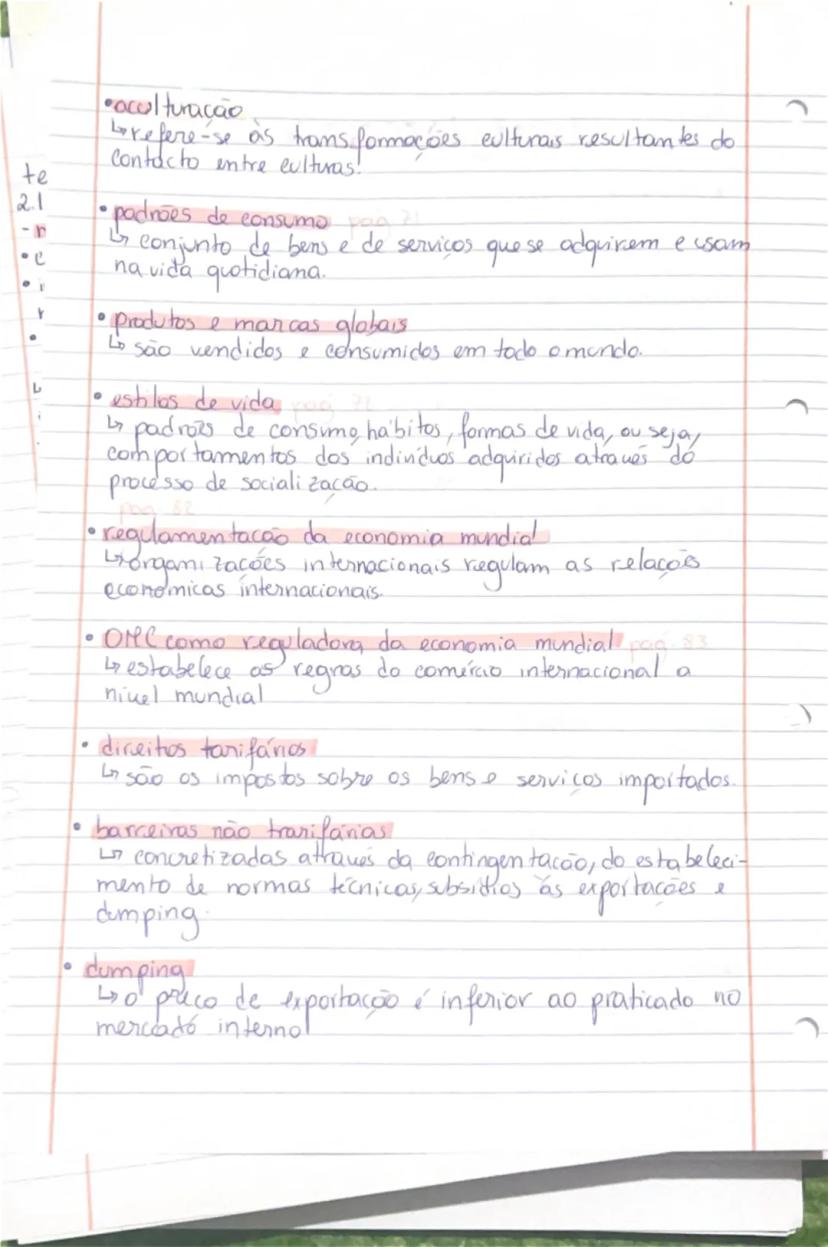 •aculturação
↳refere-se às transformações culturais resultantes do
contacto entre culturas.
• padrões de consumo pag 71
↳ conjunto de bens e de serviços que se adquirem e usam
na vida quotidiana.
• produtos e marcas globais
↳ são vendidos e consumidos em todo o mundo.
• estilos de vida pag 72
↳ padrões de consumo, hábitos, formas de vida, ou seja,
comportamentos dos indivíduos adquiridos através do
processo de socialização.
pag. 82
• regulamentação da economia mundial
↳organizações internacionais regulam as relações
económicas internacionais.
• OMC como reguladora da economia mundial pag. 83
↳ estabelece as regras do comércio internacional a
nível mundial
• direitos tarifários
↳ são os impostos sobre os bens e serviços importados.
• barreiras não trarifárias
↳ concretizadas através da contingentação, do estabeleci-
mento de normas técnicas, subsídios às exportações e
dumping.
• dumping
↳ o preço de exportação é inferior ao praticado no
mercado interno
te
2.1